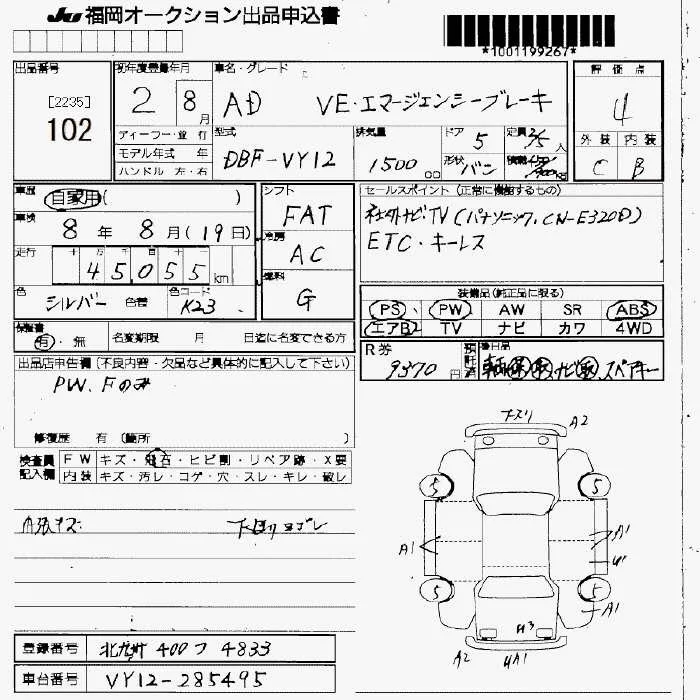 JU 福岡オークション出品申込書
*1001199267*
出品番号 初年度登録年月 車名・グレード 評価点
[2235]
102
2 8月 AD VE・エマージェンシーブレーキ 4
ディーラー・並行 型式 排気量 ドア 5 定員 2/5人 外装 内装
モデル年式 年 DBF-VY12 1500cc 形状 バン 積載 C B
ハンドル 左・右
車歴 自家用( ) シフト セールスポイント(正常に機能するもの)
車検 8年 8月(19日) FAT 社外ナビ.TV(パナソニック.CN-E320D)
走行 十万千百十 冷房 ETC・キーレス
45055km AC
色 シルバー 色替 色コード K23 燃料 G
装備品(純正品に限る)
PS PW AW SR ABS
エアB2 TV ナビ カワ 4WD
保証書 有・無 名変期限 月 日迄に名変できる方
R券 9370円 預託済 後日品 ナビ スペアキー
出品店申告欄(不良内容・欠品など具体的に記入して下さい)
PW.Fのみ
修復歴 有(箇所 )
検査員記入欄 FW キズ・飛石・ヒビ割・リペア跡・X要
内装 キズ・汚レ・コゲ・穴・スレ・キレ・破レ
下回りヨゴレ
下スリ A2
A2
5 5
A1 A1
U1
5 5
A1
U3
A2 UA1
登録番号 北九州 400 フ 4833
車台番号 VY12-285495